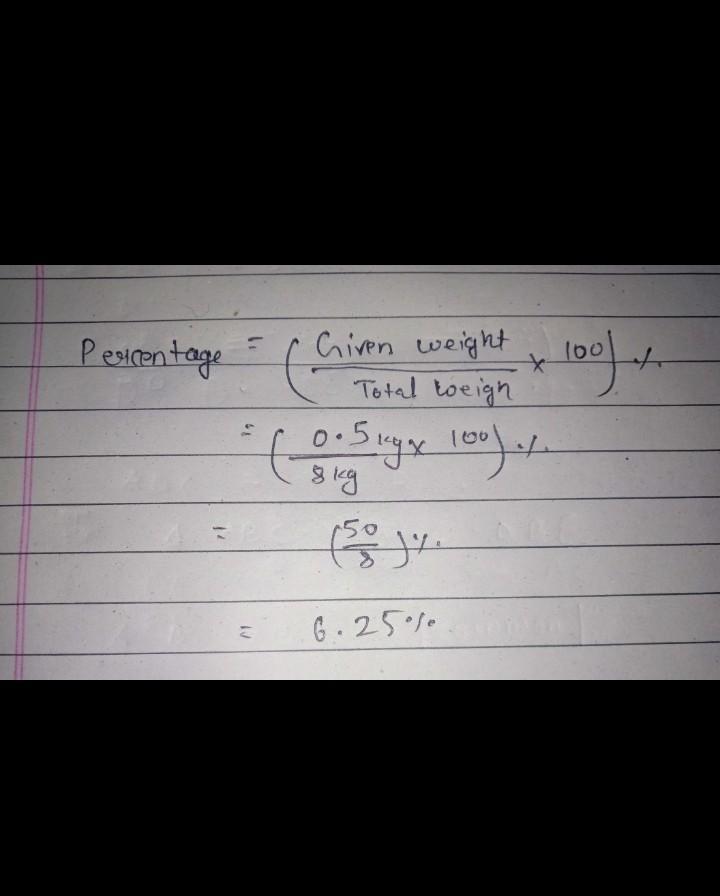 Percentage = (Given weight / Total weigh × 100) %.
= (0.5 kg / 8 kg × 100) %.
= (50 / 8) %.
= 6.25%